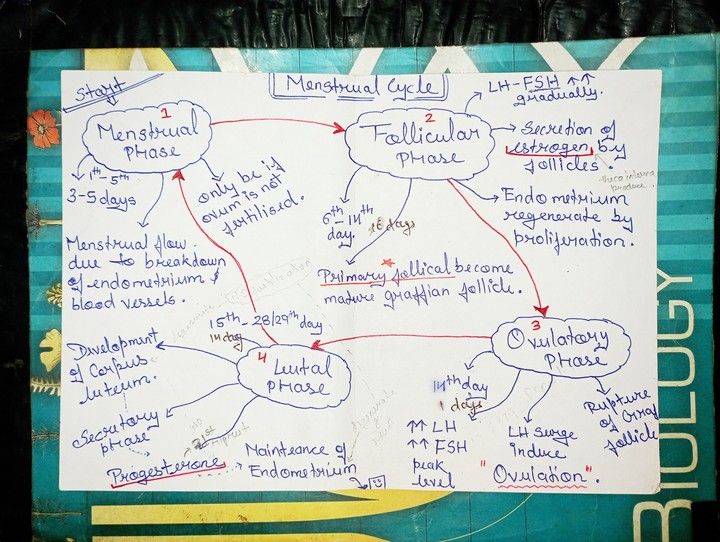 Menstrual Cycle
Start
1
Menstrual
Phase
1st - 5th
3-5 days
Menstrual flow
due to breakdown
of endometrium &
blood vessels.
only be if
ovum is not
fertilised.
2
Follicular
Phase
LH-FSH ↑↑
gradually.
Secretion of
estrogen by
follicles
theca interna
produce.
Endometrium
regenerate by
proliferation.
6th - 14th
day.
days
Primary follical become
mature graffian follicle.
3
Ovulatory
Phase
14th day
1 days
↑↑ LH
↑↑ FSH
peak
level
LH Surge
induce
"Ovulation".
Rupture
of Graf
follicle
4
Lutal
Phase
15th - 28/29th day
14 day
Development
of Corpus
luteum.
Secretory
phase
21st
Progesterone
Mainteance of
Endometrium
BIOLOGY